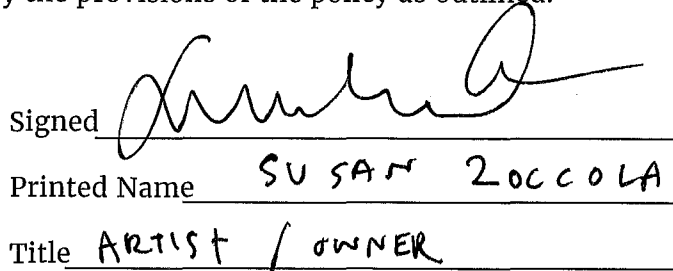 y the provisions of the policy as outlined.
Signed
Printed Name SUSAN ZOCCOLA
Title ARTIST / OWNER